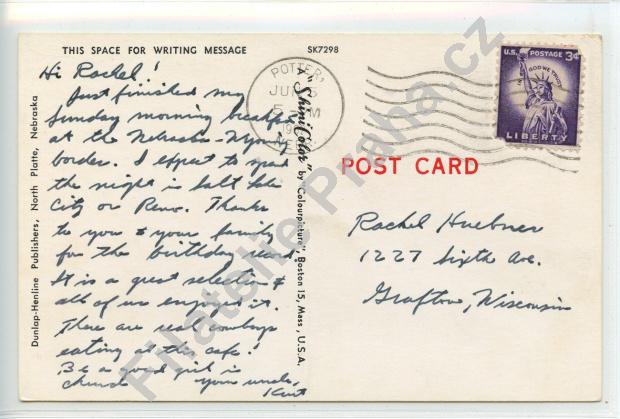 THIS SPACE FOR WRITING MESSAGE
SK7298
Hi Rachel!
Just finished my
Sunday morning breakfast
at the Nebraska-Wyoming
border. I expect to spend
the night in Salt Lake
City or Reno. Thanks
to you & your family
for the birthday
It is a great selection &
all of us enjoyed it.
There are real cowboys
eating at this cafe!
Be a good girl in
church
your uncle,
Kurt
Dunlap-Henline Publishers, North Platte, Nebraska
A "ShiniColor" by "Colourpicture", Boston 15, Mass., U.S.A.
POTTER,
JUN
NEBR.
U.S. POSTAGE 3¢
IN GOD WE TRUST
LIBERTY
POST CARD
Rachel Huebner
1227 Sixth Ave.
Grafton, Wisconsin
Filatelie Praha.cz